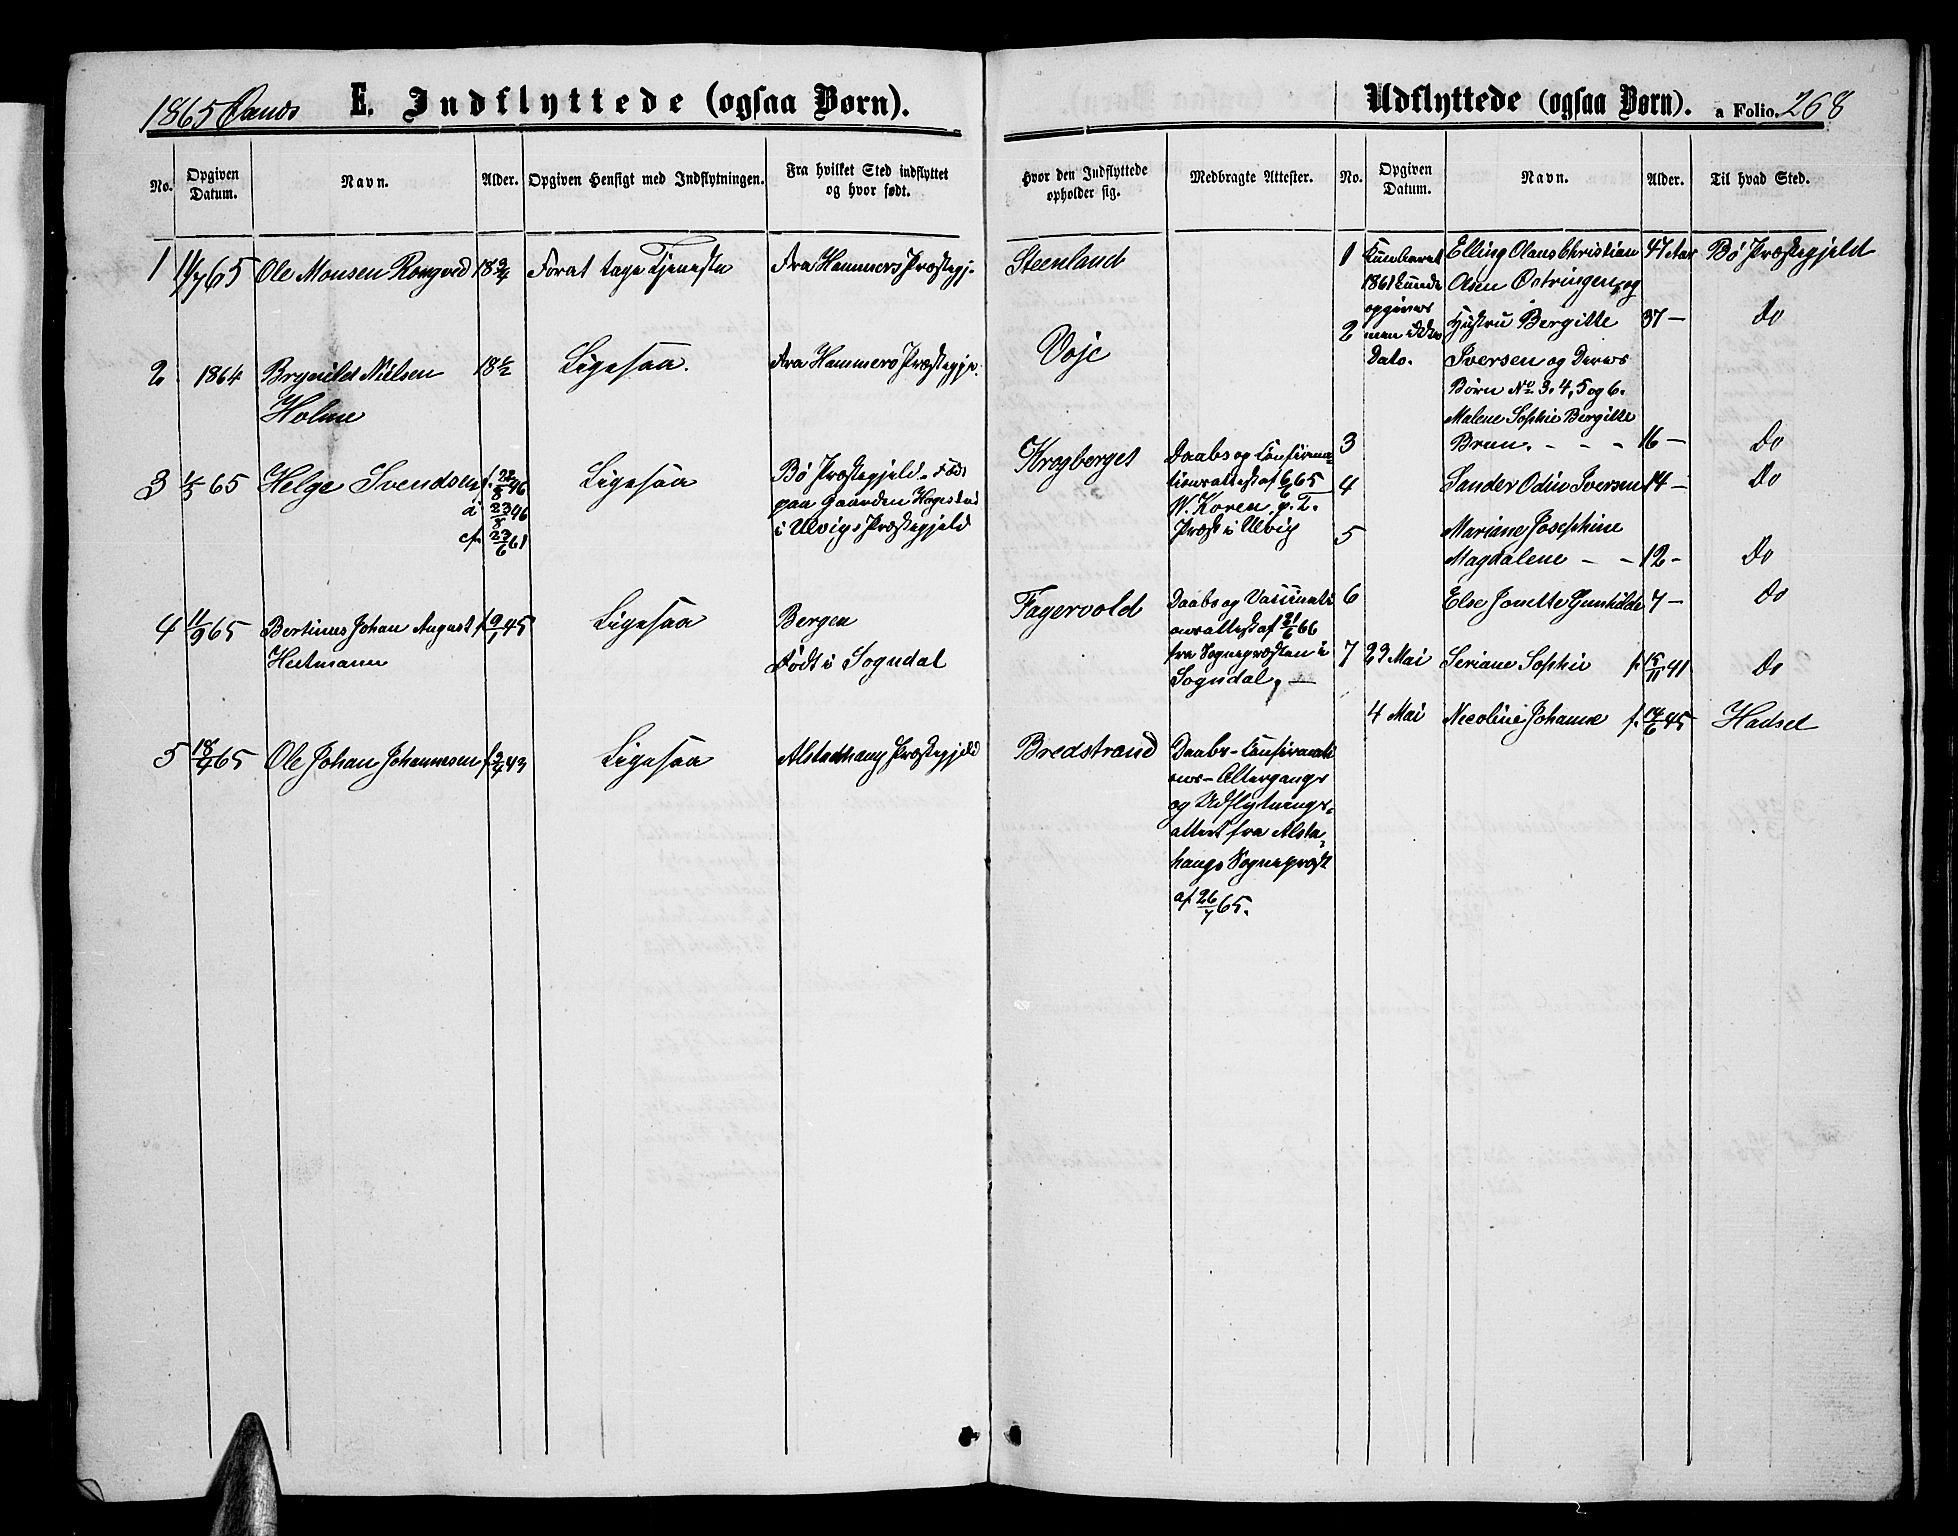 1865 E. Indflyttede (ogsaa Børn).
No. Opgiven Datum. Navn. Alder. Opgiven Hensigt med Indflytningen. Fra hvilket Sted indflyttet og hvor født.
1 65 Ole Monsen 18 3/4 Forat tage Tjeneste Fra Hammers Præstegj.
2 1864 Brynild Nielsen 18 1/2 Ligesaa. Fra Hammers Præstegj.
Holme
3 65 Helge Svendsen f. 22/8 46 Ligesaa Bø Præstegjeld. Født
d 23/8 46 paa Gaarden
cf. 23/6 61 i Ulvigs Præstegjeld
4 11/9 65 Bertinus Johan August f. 9/1 45 Ligesaa Bergen
Født i Sogndal
5 18/9 65 Ole Johan Johannesen f. 43 Ligesaa Alstadhaug Præstegjeld
Udflyttede (ogsaa Børn). a Folio. 268
Hvor den Indflyttede opholder sig. Medbragte Attester. No. Opgiven Datum. Navn. Alder. Til hvad Sted.
Steenland
Voje
Krogberget Daabs og Confirma-
tionsattest af 6/6 65
W. Koren, p. T.
Præst i Ulvig
Fagervold Daabs og Vaccinati
onsattest af 21/6 66
fra Sognepræsten i
Sogndal,
Bredstrand Daabs- Confirmati
ons- Altergangs
og Udflytnings-
attest fra Alsta-
haugs Sognepræst
af 26/7 65.
1 Elling Olaus Christian 47 Aar Bø Præstegjeld
1861 kunde Olsen Østringen, og
opgives
2 men ikke Hustru Bergitte 37 — Do
Dato. Iversen og Deres
Børn No 3. 4, 5 og 6.
Malene Sophie Bergitte
3 Bruun. - - - 16 — Do
4 Sander Odin Iversen 14 — Do
5 Mariane Josephine
Magdalene - - 12 - Do
6 Else Jonette Gunhilde 7 — Do
7 23 Mai Seriane Sophie f. 15/11 41 Do
4 Mai Nicoline Johanne f. 14/6 45 Hadsel